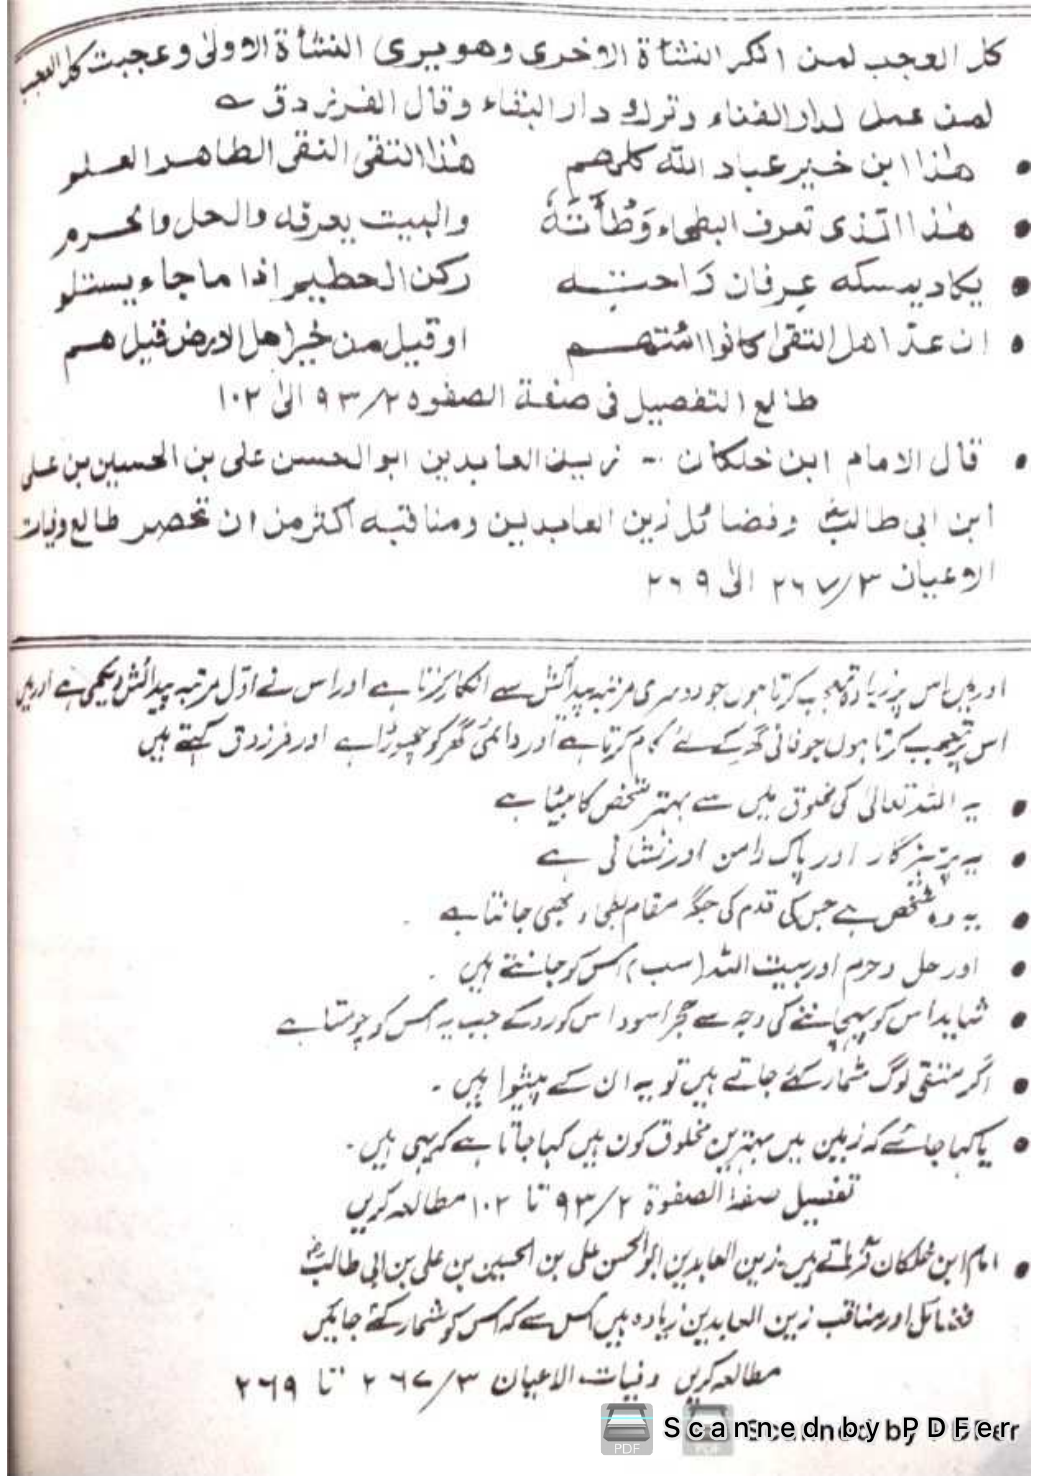 كل العجب لمن انكر النشأة الاخرى وهو يرى النشأة الاولىٰ وعجبت كل العجب
لمن عمل لدار الفناء وترك دار البقاء وقال الفرزدق ے
• هٰذا ابن خير عباد الله كلهم هٰذا التقى النقى الطاهر العلم
• هٰذا الّذى تعرف البطحاء وَطْأَتَهٗ والبيت يعرفه والحل والحرم
• يكاد يمسكه عرفان راحته ركن الحطيم اذا ما جاء يستلم
• ان عدّ اهل التقىٰ كانوا ائمتهم او قيل من خير اهل الارض قيل هم
طالع التفصيل فى صفة الصفوه ٢/٩٣ الىٰ ١٠٢
• قال الامام ابن خلكان :- زين العابدين ابو الحسن على بن الحسين بن على
ابن ابى طالب وفضائل زين العابدين ومناقبه اكثر من ان تحصر طالع وفيات
الاعيان ٣/٢٦٧ الىٰ ٢٦٩
اور میں اس پر زیادہ تعجب کرتا ہوں جو دوسری مرتبہ پیدائش سے انکار کرتا ہے اور اس نے اوّل مرتبہ پیدائش دیکھی ہے اور میں
اس پر تعجب کرتا ہوں جو فانی گھر کے لئے کام کرتا ہے اور دائمی گھر کو چھوڑا ہے اور فرزدق کہتے ہیں
• یہ اللہ تعالیٰ کی مخلوق میں سے بہتر شخص کا بیٹا ہے
• یہ پرہیزگار اور پاک دامن اور نشانی ہے
• یہ وہ شخص ہے جس کی قدم کی جگہ مقام بطحاء بھی جانتا ہے ۔
• اور حل وحرم اور بیت اللہ (سب) اس کو جانتے ہیں ۔
• شاید اس کو پہچاننے کی وجہ سے حجر اسود اس کو روکے جب یہ اس کو چومتا ہے
• اگر متقی لوگ شمار کئے جاتے ہیں تو یہ ان کے پیشوا ہیں ۔
• یا کہا جائے کہ زمین میں بہترین مخلوق کون ہیں کہا جاتا ہے کہ یہی ہیں ۔
تفصیل صفۃ الصفوۃ ٢/٩٣ تا ١٠٢ مطالعہ کریں
• امام ابن خلکان فرماتے ہیں زین العابدین ابو الحسن علی بن الحسین بن علی بن ابی طالب
فضائل اور مناقب زین العابدین زیادہ ہیں اس سے کہ اس کو شمار کئے جائیں
مطالعہ کریں وفیات الاعیان ٣/٢٦٧ تا ٢٦٩
Scanned by PDFer